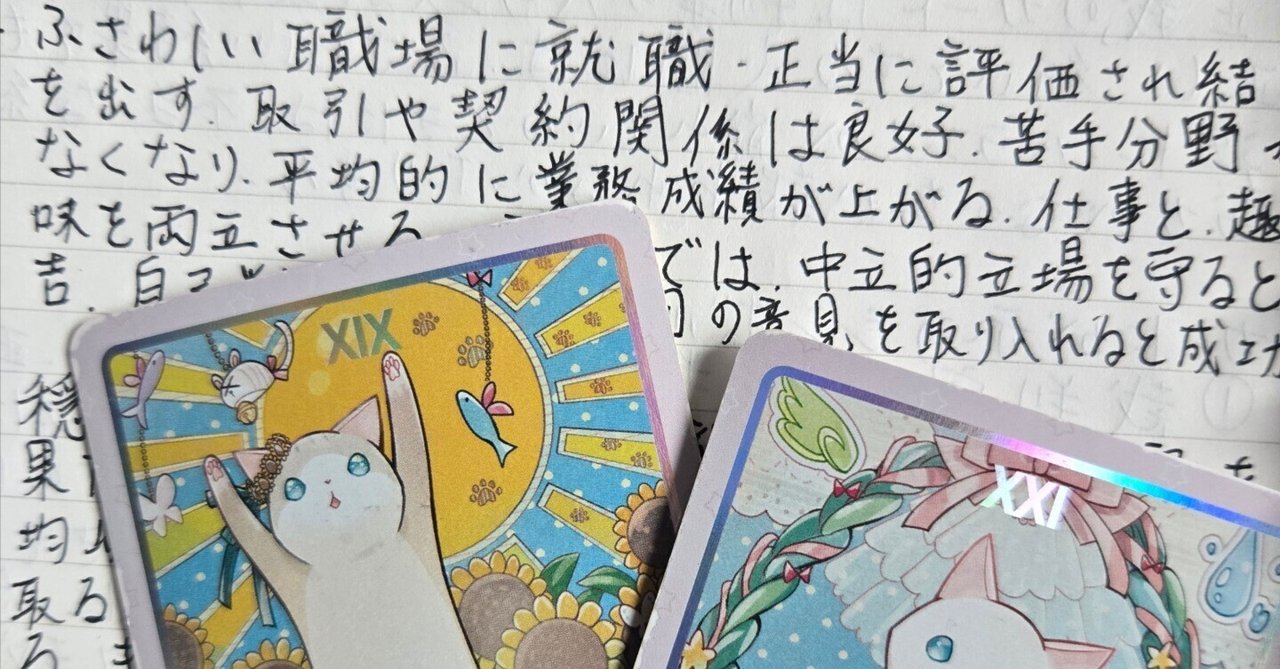 ふさわしい職場に就職・正当に評価され結
を出す.取引や契約関係は良好.苦手分野
なくなり.平均的に業務成績が上がる.仕事と.趣
味を両立させる
吉.自己 では.中立的立場を守ると
の意見を取り入れると成功
穏
果
均
取る
XIX
XXI